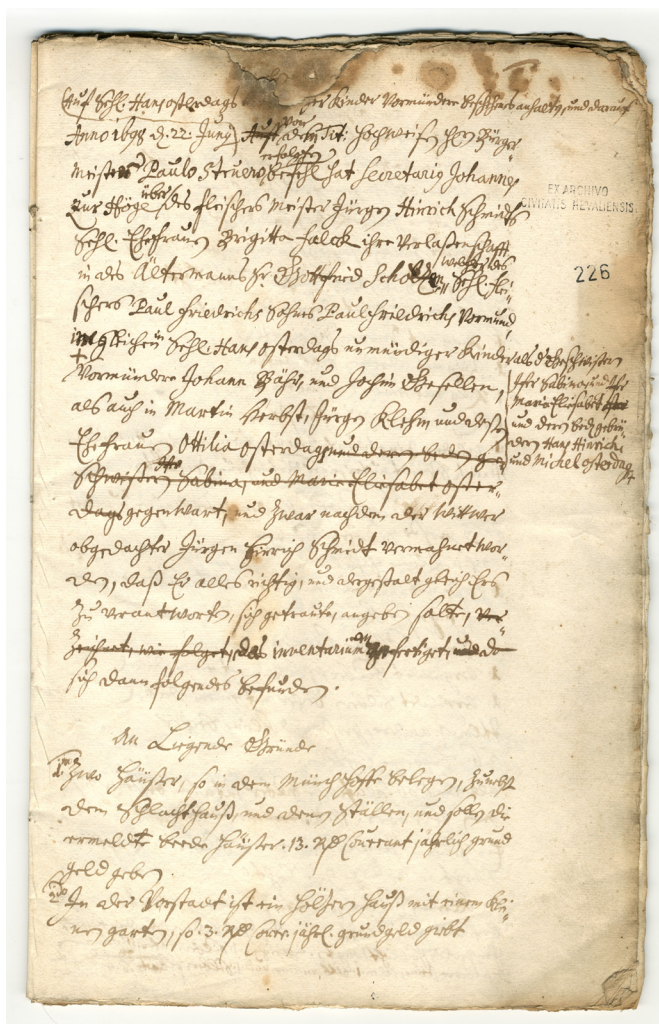 Auf Sehl. Hans osterdags Kinder Vormündere beschehenes anhalten, und darauf
Anno 1698 d. 22. Juny, von dem Tit: Hochweisen Hrn Bürge
Meister Paulo Struerus erfolgten befehl hat Secretarius Johannes
zur Höge über des fleischers Meister Jürgen Hinrich Schmidts
Sehl. Ehefrauen Brigitta Falck ihre Verlassenschafft
in des Ältermanns Hr. Gottfried Scholtzen, Sehl. flei-
schers Paul friedrichs Sohnes Paul friedrichs Vormund,
imgleichen Sehl. Hans osterdags unmündiger Kinder
Vormündere Johann Bähr, und Jochim Gesellen,
als auch in Martin Herbst, Jürgen Klehm und dessen
Ehefrauen Ottilia osterdags, und deren beden ge-
Schwistern Sabina, und Maria Elisabet oster-
dags gegenwart, und zwar nachdem der Witwer
obgedachter Jürgen Hinrich Schmidt vermahnet wor-
den, daß Er alles richtig, und dergestalt gleich Er es
zu verantworten, sich getraute, angeben solte, ver-
zeichnet, wie folget, das inventarium gefertiget, und da
sich dann folgendes befunden.
als d. beschwistern
Jfer Sabina, und Jfr
Maria Elisabet
und deren bed. gebrü-
dern Hans Hinrich
und Michel osterdag
EX ARCHIVO
CIVITATIS REVALIENSIS.
226
An Liegende Gründe
1mo Zwo Häußer, so in dem Münch Hoffe belegen, zunebst
dem Schlachthauß, und denen Ställen, und sollen die
ermeldte beede Häußer 13. Rd Courant jährlich grund
geld geben.
2do In der Vorstadt ist ein Höltzern Hauß mit einem klei-
nen garten, so 3. Rd Cour. jährl. grundgeld gibt